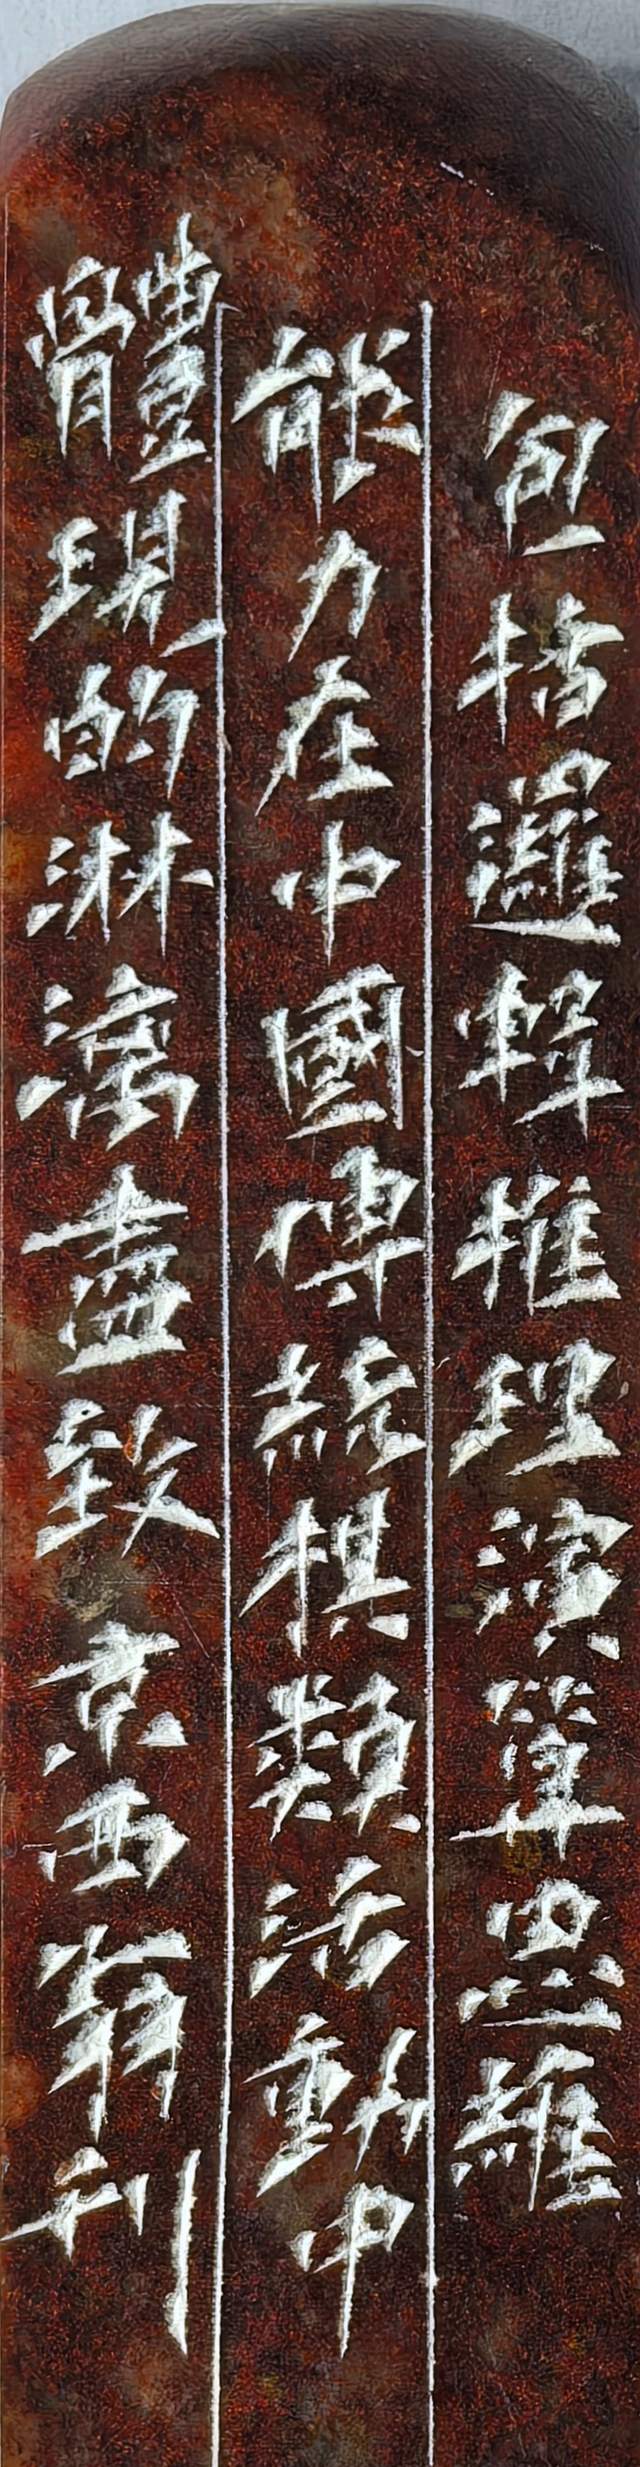 包括邏輯推理演算思維
能力在中國傳統棋類活動中
體現的淋漓盡致京西翁刊